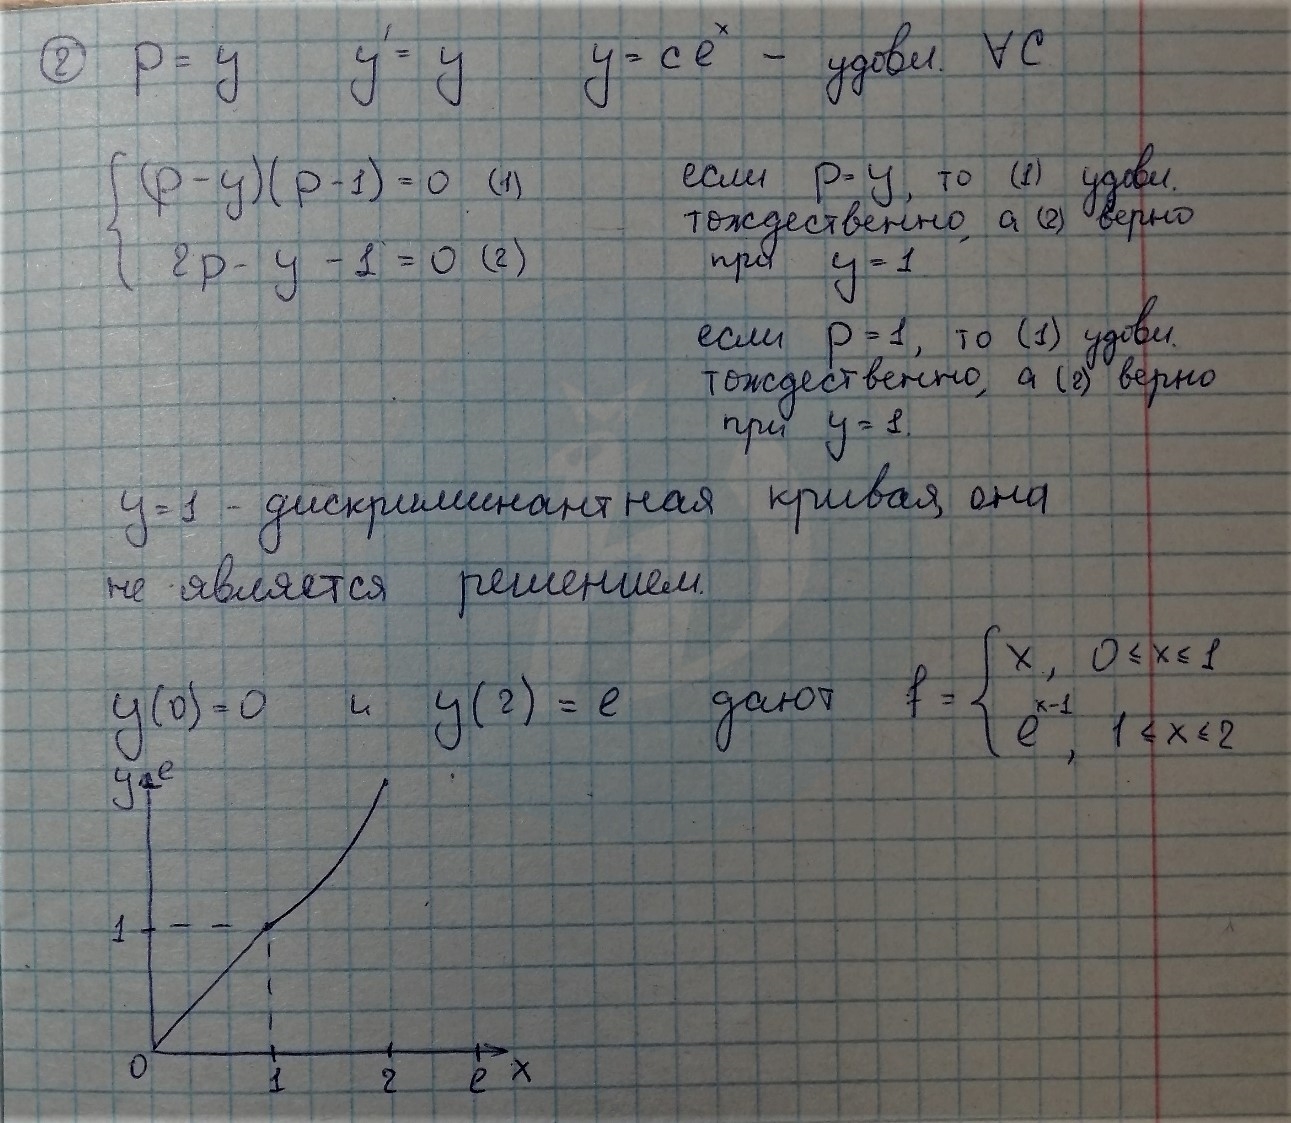 ② p = y y' = y y = ce^x – удовл. ∀C
{ (p - y)(p - 1) = 0 (1) если p = y, то (1) удовл.
тождественно, а (2) верно
2p - y - 1 = 0 (2) при y = 1
если p = 1, то (1) удовл.
тождественно, а (2) верно
при y = 1.
y = 1 - дискриминантная кривая, она
не является решением.
y(0) = 0 и y(2) = e дают f = { x, 0 ≤ x ≤ 1
e^{x-1}, 1 ≤ x ≤ 2
y e
1
0 1 2 e x